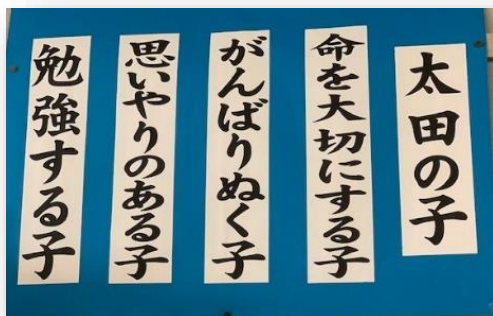 太田の子
命を大切にする子
がんばりぬく子
思いやりのある子
勉強する子